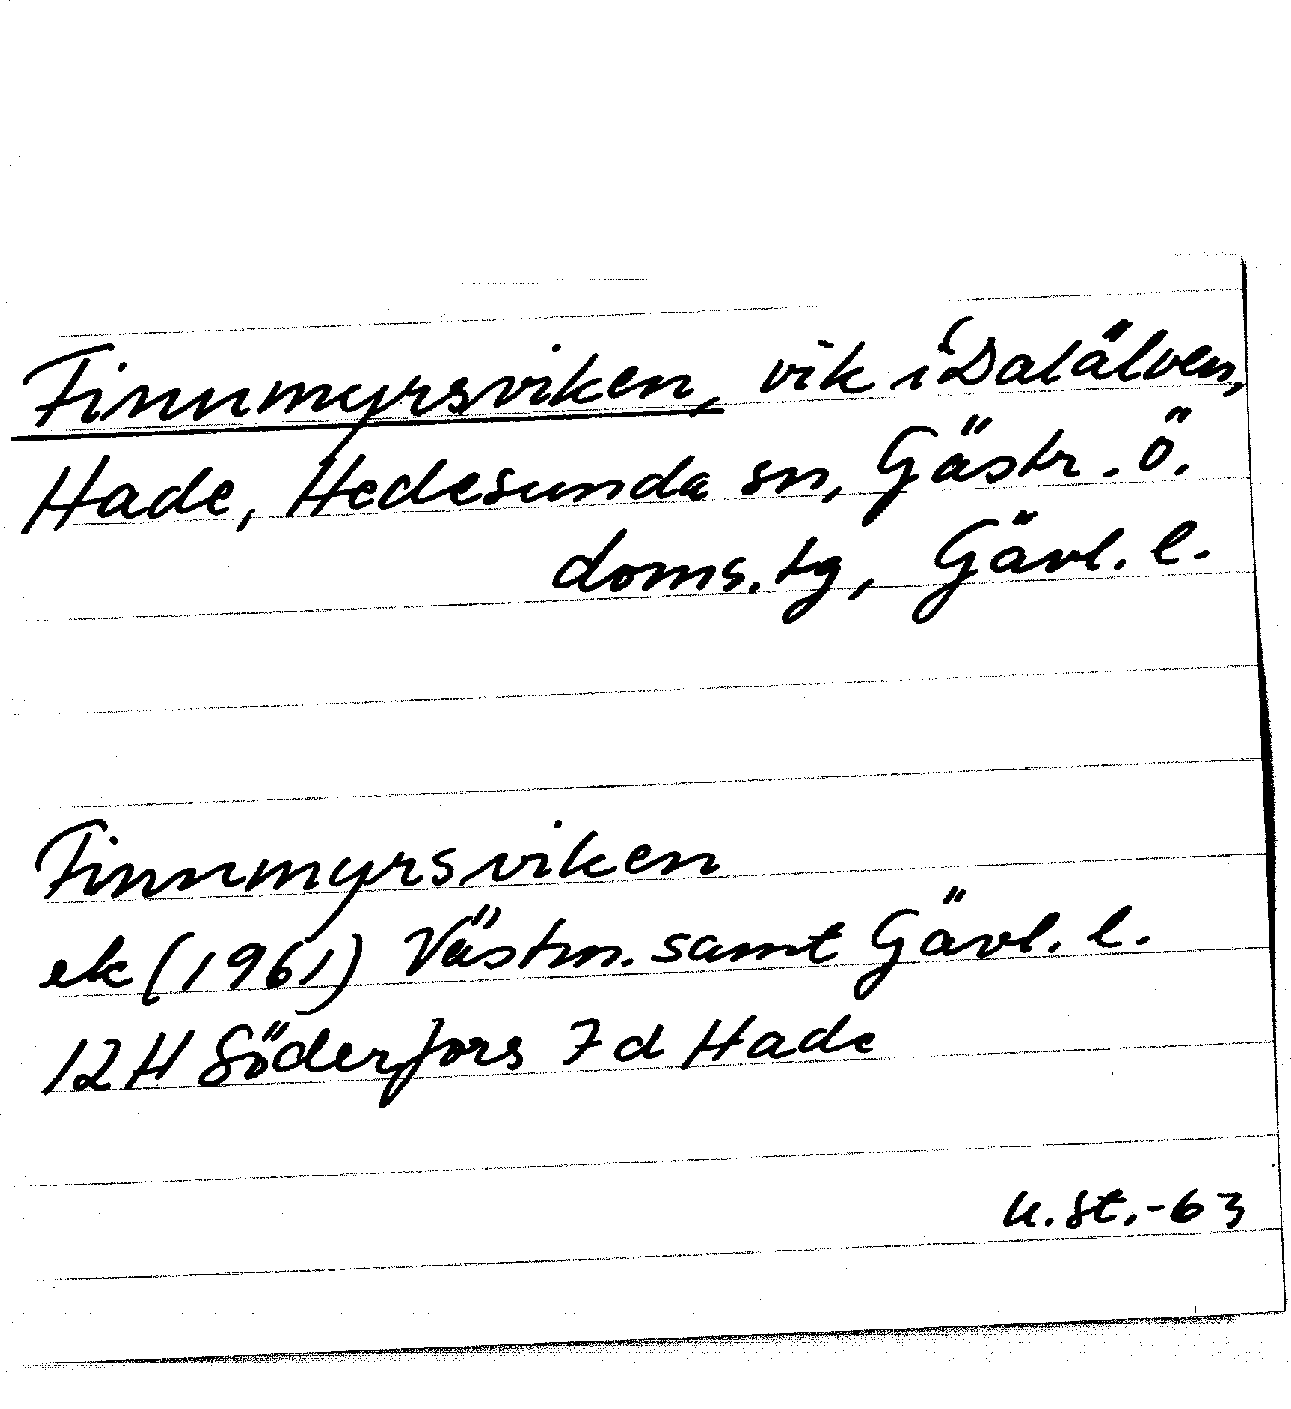 Finnmyrsviken, vik i Dalälven,
Hade, Hedesunda sn, Gästr. ö.
doms.tg, Gävl. l.
Finnmyrsviken
ek (1961) Västm. samt Gävl. l.
12 H Söderfors 7 d Hade
u. st. -63